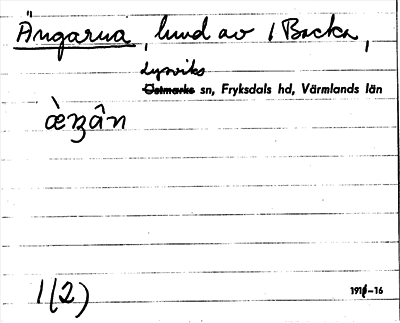 Ängarna, lund av 1 Backa,
Lysviks
Östmarks sn, Fryksdals hd, Värmlands län
æ̀ŋân
1(2)
1916-16